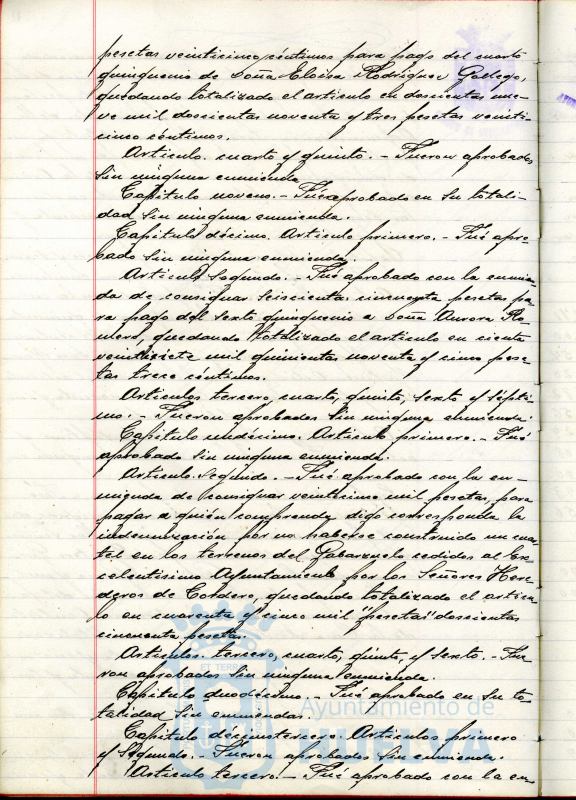 pesetas veinticinco céntimos para pago del cuarto
quinquenio de Doña Eloisa Rodriguez Gallego,
quedando totalizado el articulo en doscientas nue-
ve mil doscientas noventa y tres pesetas veinti-
cinco céntimos.
Articulo. cuarto y quinto. - Fueron aprobados
sin ninguna enmienda
Capitulo noveno. - Fué aprobado en su totali-
dad sin ninguna enmienda.
Capitulo décimo. Articulo primero. - Fué apro-
bado sin ninguna enmienda.
Articulo segundo. - Fué aprobado con la enmien-
da de consignar seiscientas cincuenta pesetas pa-
ra pago del sexto quinquenio a Doña Aurora Ro-
mero, quedando totalizado el articulo en ciento
veintisiete mil quinientas noventa y cinco pese-
tas trece céntimos.
Articulos tercero, cuarto, quinto, sexto y sépti-
mo. - Fueron aprobados sin ninguna enmienda.
Capitulo undécimo. Articulo primero. - Fué
aprobado sin ninguna enmienda.
Articulo segundo. - Fué aprobado con la en-
mienda de consignar veinticinco mil pesetas, para
pagar a quién comprenda digo corresponda la
indemnización por no haberse construido un cuar-
tel en los terrenos del cedidos al Ex-
celentisimo Ayuntamiento por los Señores Here-
deros de Cordero, quedando totalizado el articu-
lo en cuarenta y cinco mil "pesetas" doscientas
cincuenta pesetas.
Articulos tercero, cuarto, quinto, y sexto. - Fue-
ron aprobados sin ninguna enmienda.
Capitulo duodécimo. - Fué aprobado en su to-
talidad sin enmiendas.
Capitulo décimotercero. Articulos primero
y segundo. - Fueron aprobados sin enmienda.
Articulo tercero. - Fué aprobado con la en-
ET TERR
Ayuntamiento de
HUELVA